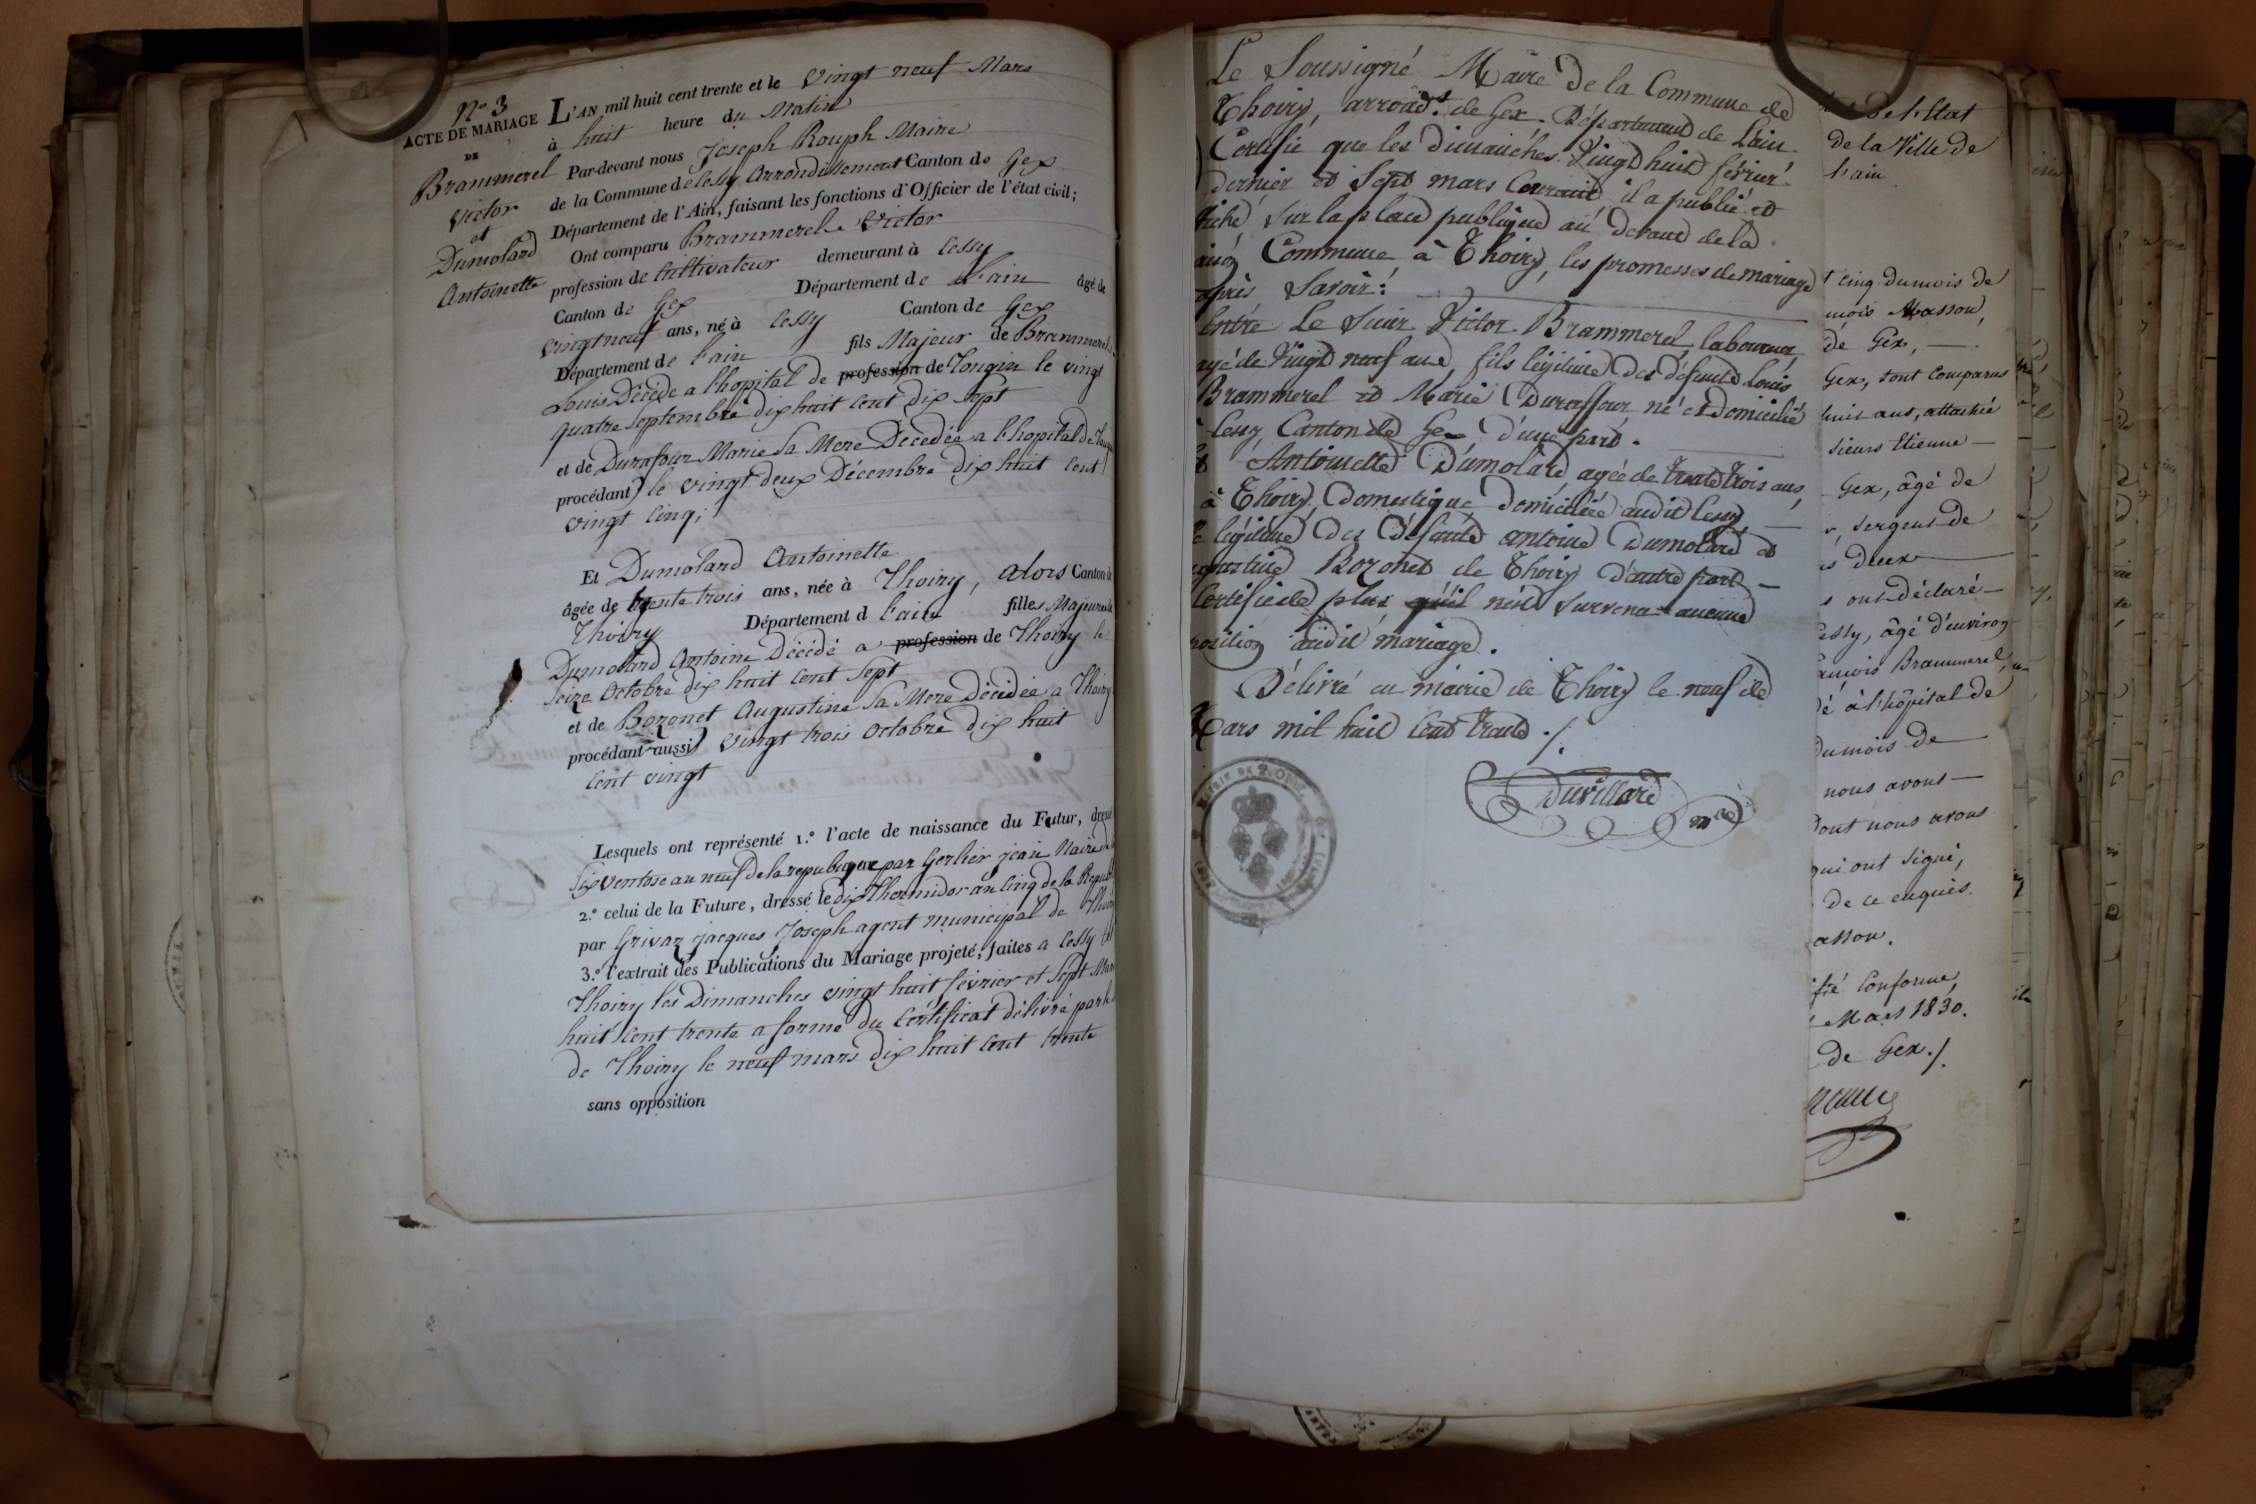 N° 3
ACTE DE MARIAGE
DE
Brammerel
Victor
et
Dumolard
Antoinette
L'AN mil huit cent trente et le vingt neuf Mars
à huit heure du Matin
Par-devant nous Joseph Rouph Maire
de la Commune de Cessy Arrondissement Canton de Gex
Département de l'Ain, faisant les fonctions d'Officier de l'état civil;
Ont comparu Brammerel Victor
profession de Cultivateur demeurant à Cessy
Canton de Gex Département de l'ain âgé de
vingt neuf ans, né à Cessy Canton de Gex
Département de l'ain fils Majeur de Brammerel
Louis Décédé a l'hopital de profession de Tougin le vingt
quatre Septembre dix huit cent dix Sept
et de Durafour Marie Sa Mere Décedée a l'hopital de
procédant le vingt deux Décembre dix huit cent
vingt Cinq;
Et Dumolard Antoinette
âgée de trente trois ans, née à Thoiry, alors Canton de
Thoiry Département d l'ain fille Majeure de
Dumolard Antoine Décédé a profession de Thoiry le
Seize Octobre dix huit Cent Sept
et de Bozonet Augustine Sa Mere Décédée a Thoiry
procédant aussi vingt trois Octobre dix huit
Cent vingt
Lesquels ont représenté 1.° l'acte de naissance du Futur, dressé
Six ventose an neuf de la republique par Gerlier jean Maire
2.° celui de la Future, dressé le dix Thermidor an Cinq de la Repub
par Grivaz Jacques Joseph agent municipal de Thoi
3.° l'extrait des Publications du Mariage projeté, faites a Cessy et
Thoiry les Dimanches vingt huit février et Sept Mars
huit Cent trente a forme du Certificat délivré par le
de Thoiry le neuf mars dix huit Cent trente
sans opposition
Le Soussigné Maire de la Commune de
Thoiry, arrond.t de Gex. Département de L'ain.
Certifie que les dimanches Vingt huit février
dernier et Sept mars Courant il a publié et
fiché Sur la place publique au devant de la
aison Commune à Thoiry, les promesses de mariage
après Savoir:
Entre Le Sieur Victor Brammerel, laboureur,
agé de Vingt neuf ans, fils légitime des défunts Louis
Brammerel et Marie Duraffour, né et Domicilié
à Cessy Canton de Gex D'une part.
Et Antoinette Dumolard, agée de trente trois ans,
à Thoiry, Domestique, Domiciliée audit Cessy,
légitime des Défunts antoine Dumolard et
gustine Bozonet de Thoiry D'autre part
Certifie de plus qu'il n'est Survenu aucune
position audit mariage.
Délivré en mairie de Thoiry le neuf de
Mars mil huit Cent trente ./.
Duvillard
m.re
MAIRIE DE THOIRY
de l'Etat
de la Ville de
l'ain
t cinq du mois de
mois Masson,
de Gex,
Gex, sont comparus
huit ans, attaché
sieurs Etienne
Gex, âgé de
sergent de
s deux
s ont déclaré
Cessy, âgé d'environ
ançois Brammerel,
dé à l'hôpital de
du mois de
nous avons
Dont nous avons
qui ont signé,
de ce enquis.
asson.
fié Conforme,
Mars 1830.
de Gex./.